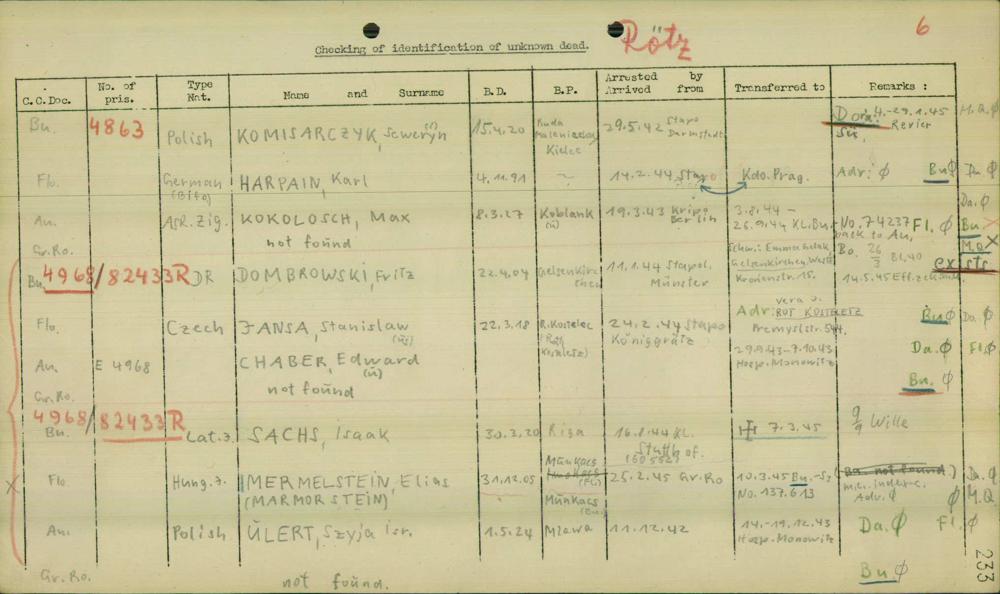 Rötz
6
Checking of identification of unknown dead.
C.C.Doc. No. of pris. Type Nat. Name and Surname B.D. B.P. Arrested by Arrived from Transferred to Remarks :
Bu. 4863 Polish KOMISARCZYK, Seweryn 15.4.20 Ruda Kielce 29.5.42 Stapo Darmstadt Dora: 4.-29.1.45 Revier M.Q. Ø
Flo. German HARPAIN, Karl 4.11.91 ~ 14.2.44 Stapo Kdo. Prag. Adr: Ø Bu Ø Da. Ø
(Bifo)
An. Zig. KOKOLOSCH, Max 8.3.27 Koblank (ü) 19.3.43 Kripo Berlin 3.8.44 – 26.9.44 KL.Bu. No. 74237 back to Au. Fl. Ø Da. Ø Bu.
not found
Gr.Ro.
Bu. 4968/82433R DR DOMBROWSKI, Fritz 22.4.04 Gelsenkirchen 11.1.44 Stapol. Münster Gelsenkirchen, Westf. Kronenstr. 15. Bo. 26/3 14.5.45 M.Q. X
ex sts
Flo. Czech JANSA, Stanislaw 22.3.18 R.Kostelec 24.2.44 Stapo Königgrätz Adr: ROT KOSTELETZ Premyslstr. 544. Bu Ø Da. Ø
An. E 4968 CHABER, Edward (ü) 29.9.43-7.10.43 Hosp. Monowitz Da. Ø Fl. Ø
not found Bu. Ø
Gr.Ro.
4968/82433R
Bu. Lat.J. SACHS, Isaak 30.3.20 Riga 16.8.44 KL. Stutthof. 7.3.45 9/9 Wille
Flo Hung.J. MERMELSTEIN, Elias 31.12.05 Munkacs (Flo) 25.2.45 Gr.Ro 10.3.45 Bu. (Bu. not found) Da. Ø
(MARMORSTEIN) Munkacs (Bu. No. 137.613 Adr. Ø Ø M.Q.
An. Polish ÜLERT, Szyja Isr. 1.5.24 Mlawa 11.12.42 14.-19.12.43 Hosp. Monowitz Da. Ø Fl. Ø
Gr.Ro. not found. Bu. Ø
233